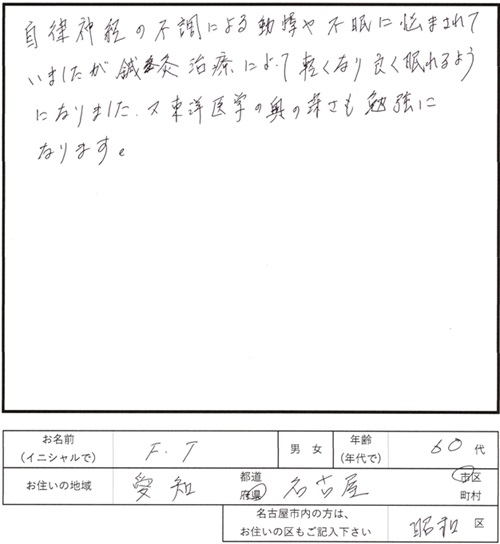 自律神経の不調による動悸や不眠に悩まされて
いましたが鍼灸治療によって軽くなり良く眠れるよう
になりました。又東洋医学の奥の深さも勉強に
なります。
お名前
(イニシャルで)
F.T
男 女
年齢
(年代で)
60代
お住いの地域
愛知
都道
府県
名古屋
市区
町村
名古屋市内の方は、
お住いの区もご記入下さい
昭和 区